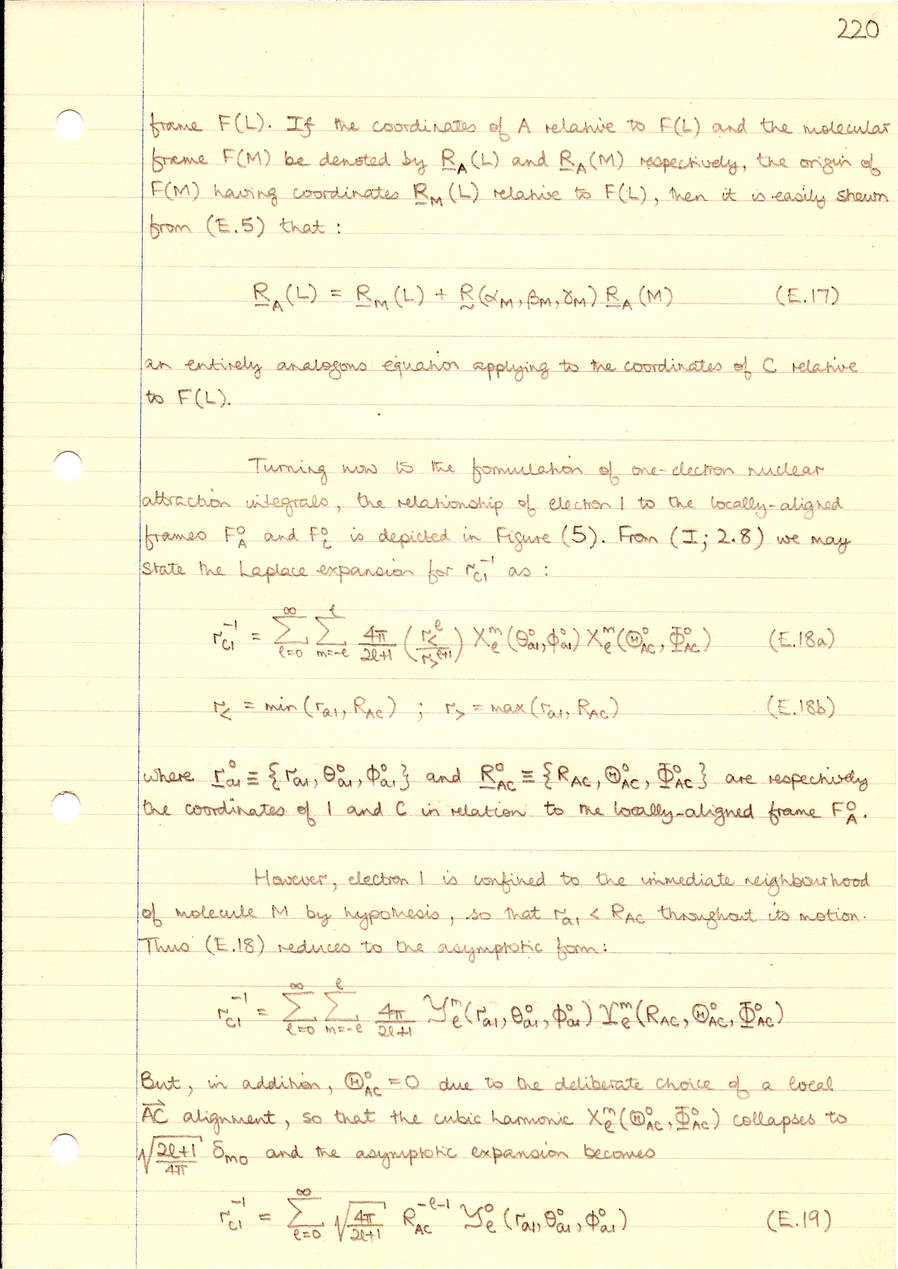 220
frame F(L). If the coordinates of A relative to F(L) and the molecular
frame F(M) be denoted by R_A(L) and R_A(M) respectively, the origin of
F(M) having coordinates R_M(L) relative to F(L), then it is easily shewn
from (E.5) that :
R_A(L) = R_M(L) + R(α_M, β_M, γ_M) R_A(M) (E.17)
an entirely analogous equation applying to the coordinates of C relative
to F(L).
Turning now to the formulation of one-electron nuclear
attraction integrals, the relationship of electron 1 to the locally-aligned
frames F_A^o and F_C^o is depicted in Figure (5). From (I; 2.8) we may
state the Laplace expansion for r_{C1}^{-1} as :
r_{C1}^{-1} = Σ_{ℓ=0}^{∞} Σ_{m=-ℓ}^{ℓ} 4π/(2ℓ+1) (r_<^ℓ / r_>^{ℓ+1}) X_ℓ^m(θ_{a1}^o, φ_{a1}^o) X_ℓ^m(Θ_{AC}^o, Φ_{AC}^o) (E.18a)
r_< = min(r_{a1}, R_{AC}) ; r_> = max(r_{a1}, R_{AC}) (E.18b)
where r_{a1}^o ≡ {r_{a1}, θ_{a1}^o, φ_{a1}^o} and R_{AC}^o ≡ {R_{AC}, Θ_{AC}^o, Φ_{AC}^o} are respectively
the coordinates of 1 and C in relation to the locally-aligned frame F_A^o.
However, electron 1 is confined to the immediate neighbourhood
of molecule M by hypothesis, so that r_{a1} < R_{AC} throughout its motion.
Thus (E.18) reduces to the asymptotic form:
r_{C1}^{-1} = Σ_{ℓ=0}^{∞} Σ_{m=-ℓ}^{ℓ} 4π/(2ℓ+1) 𝒴_ℓ^m(r_{a1}, θ_{a1}^o, φ_{a1}^o) Y_ℓ^m(R_{AC}, Θ_{AC}^o, Φ_{AC}^o)
But, in addition, Θ_{AC}^o = 0 due to the deliberate choice of a local
AC⃗ alignment, so that the cubic harmonic X_ℓ^m(Θ_{AC}^o, Φ_{AC}^o) collapses to
√((2ℓ+1)/4π) δ_{m0} and the asymptotic expansion becomes
r_{C1}^{-1} = Σ_{ℓ=0}^{∞} √(4π/(2ℓ+1)) R_{AC}^{-ℓ-1} 𝒴_ℓ^0(r_{a1}, θ_{a1}^o, φ_{a1}^o) (E.19)